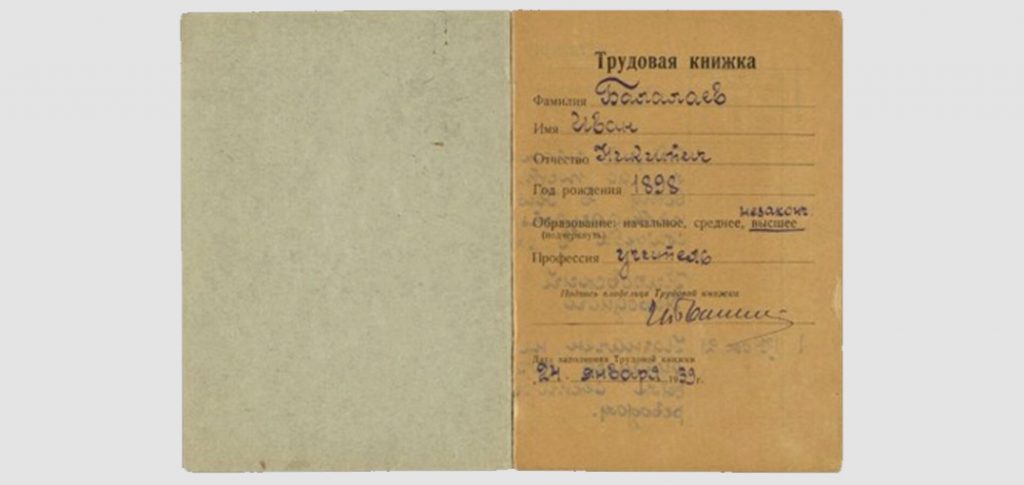 Трудовая книжка
Фамилия Балалаев
Имя Иван
Отчество Никитич
Год рождения 1898
незаконч
Образование: начальное, среднее, высшее
(подчеркнуть)
Профессия учитель
Подпись владельца Трудовой книжки
Дата заполнения Трудовой книжки
24 января 1939 г.